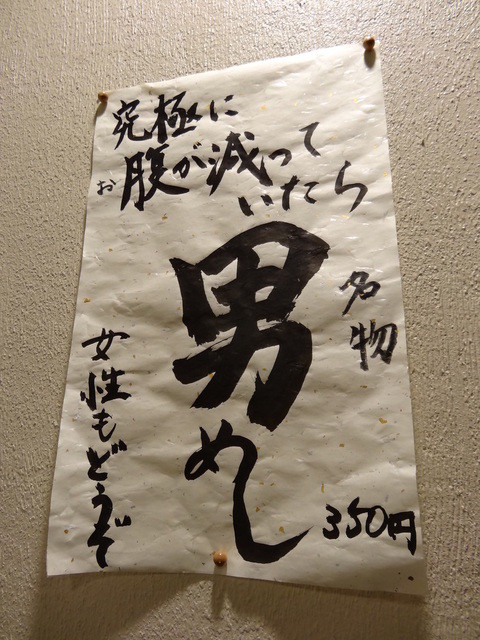 究極に
お腹が減って
いたら
名物
男めし
女性もどうぞ
350円